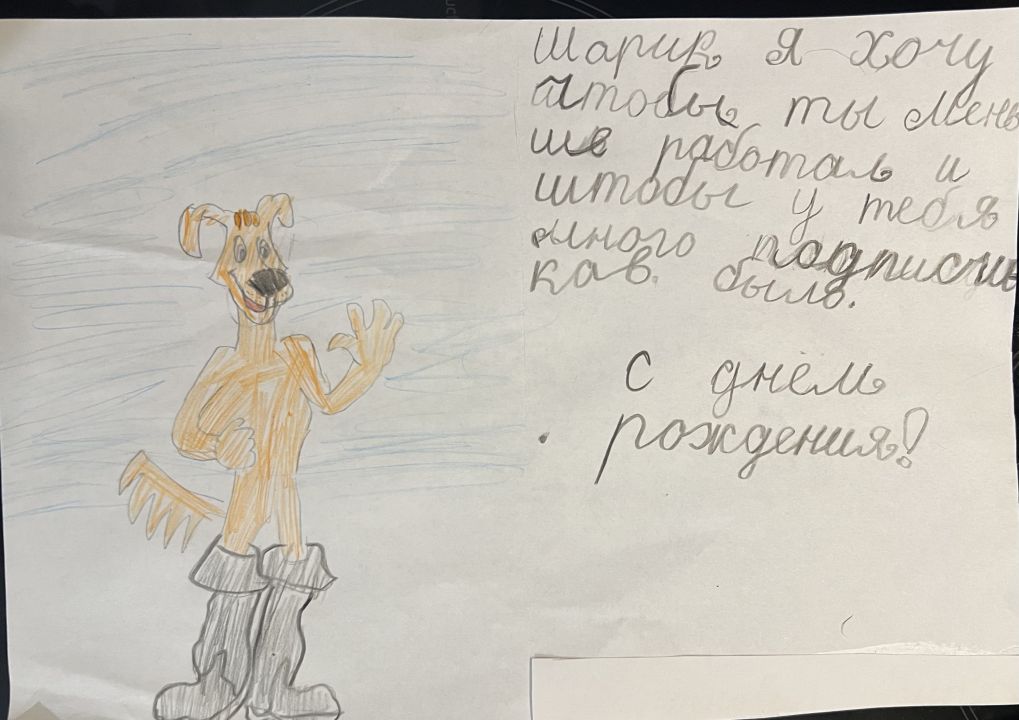 Шарик я хочу
штобы ты мень
ше работал и
штобы у тебя
много подписчи
ков. было.
с днём
рождения!